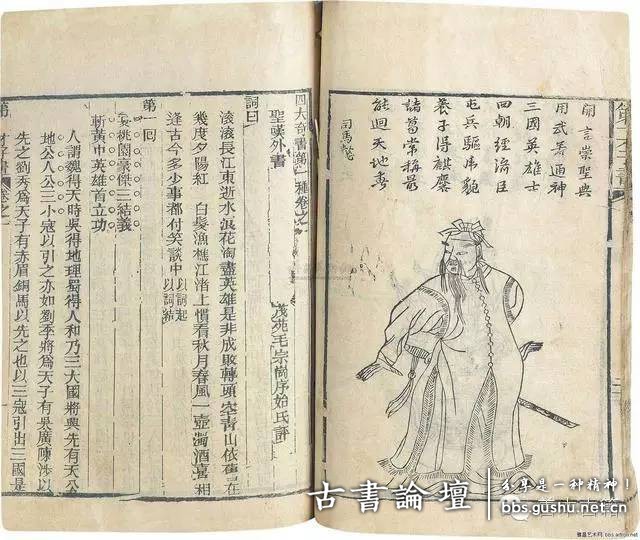 第一才子書
開言崇聖典
用武若通神
三國英雄士
四朝經濟臣
屯兵驅虎豹
養子得麒麟
諸葛常稱最
能迴天地春
司馬懿
四大奇書第一種卷之一
聖嘆外書
茂苑毛宗崗序始氏評
詞曰
滾滾長江東逝水浪花淘盡英雄是非成敗轉頭空青山依舊在
幾度夕陽紅 白髮漁樵江渚上慣看秋月春風一壺濁酒喜相
逢古今多少事都付笑談中 以詞起以詞結
第一回
宴桃園豪傑三結義
斬黃巾英雄首立功
人謂魏得天時吳得地理蜀得人和乃三大國將興先有天公
地公人公三小寇以引之亦如劉季將為天子有吳廣陳涉以
先之劉秀為天子有赤眉銅馬以先之也以三寇引出三國是
第 才子書 卷之一
古書論壇
分享是一种精神!
bbs.gushu.net.cn
雅昌艺术网 bbs.artron.net